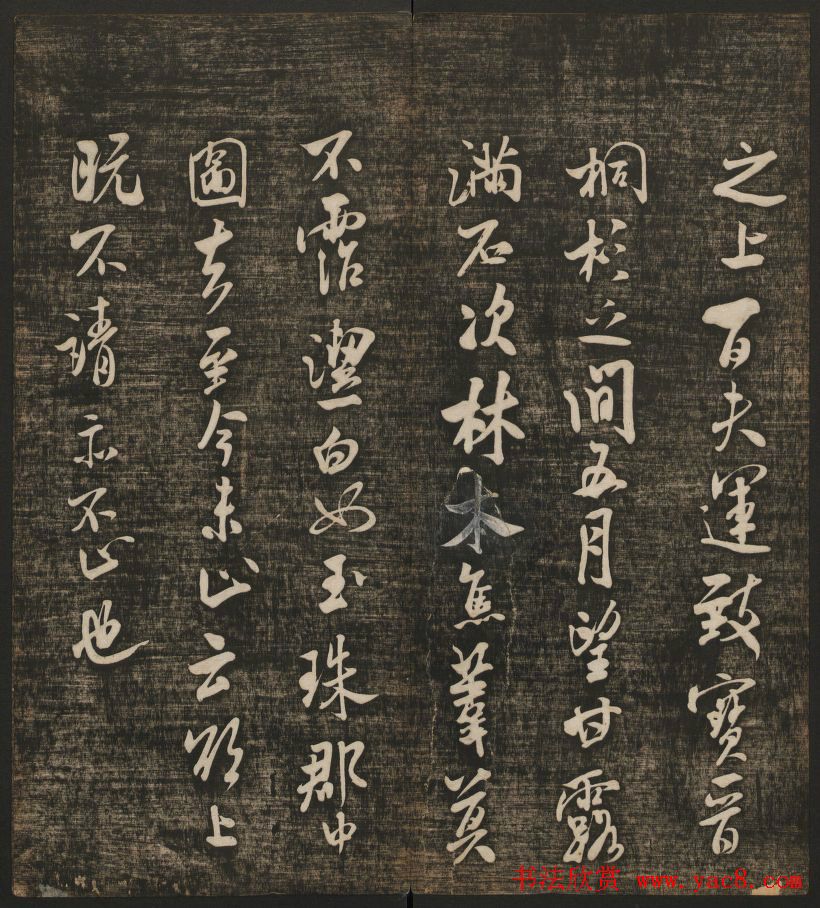 之上百夫運致寶晉
桐杉之間五月望甘露
滿石次林木焦葦莫
不霑潔白如玉珠郡中
圖去至今未止云欲上
既不請亦不止也
书法欣赏 www.yac8.com